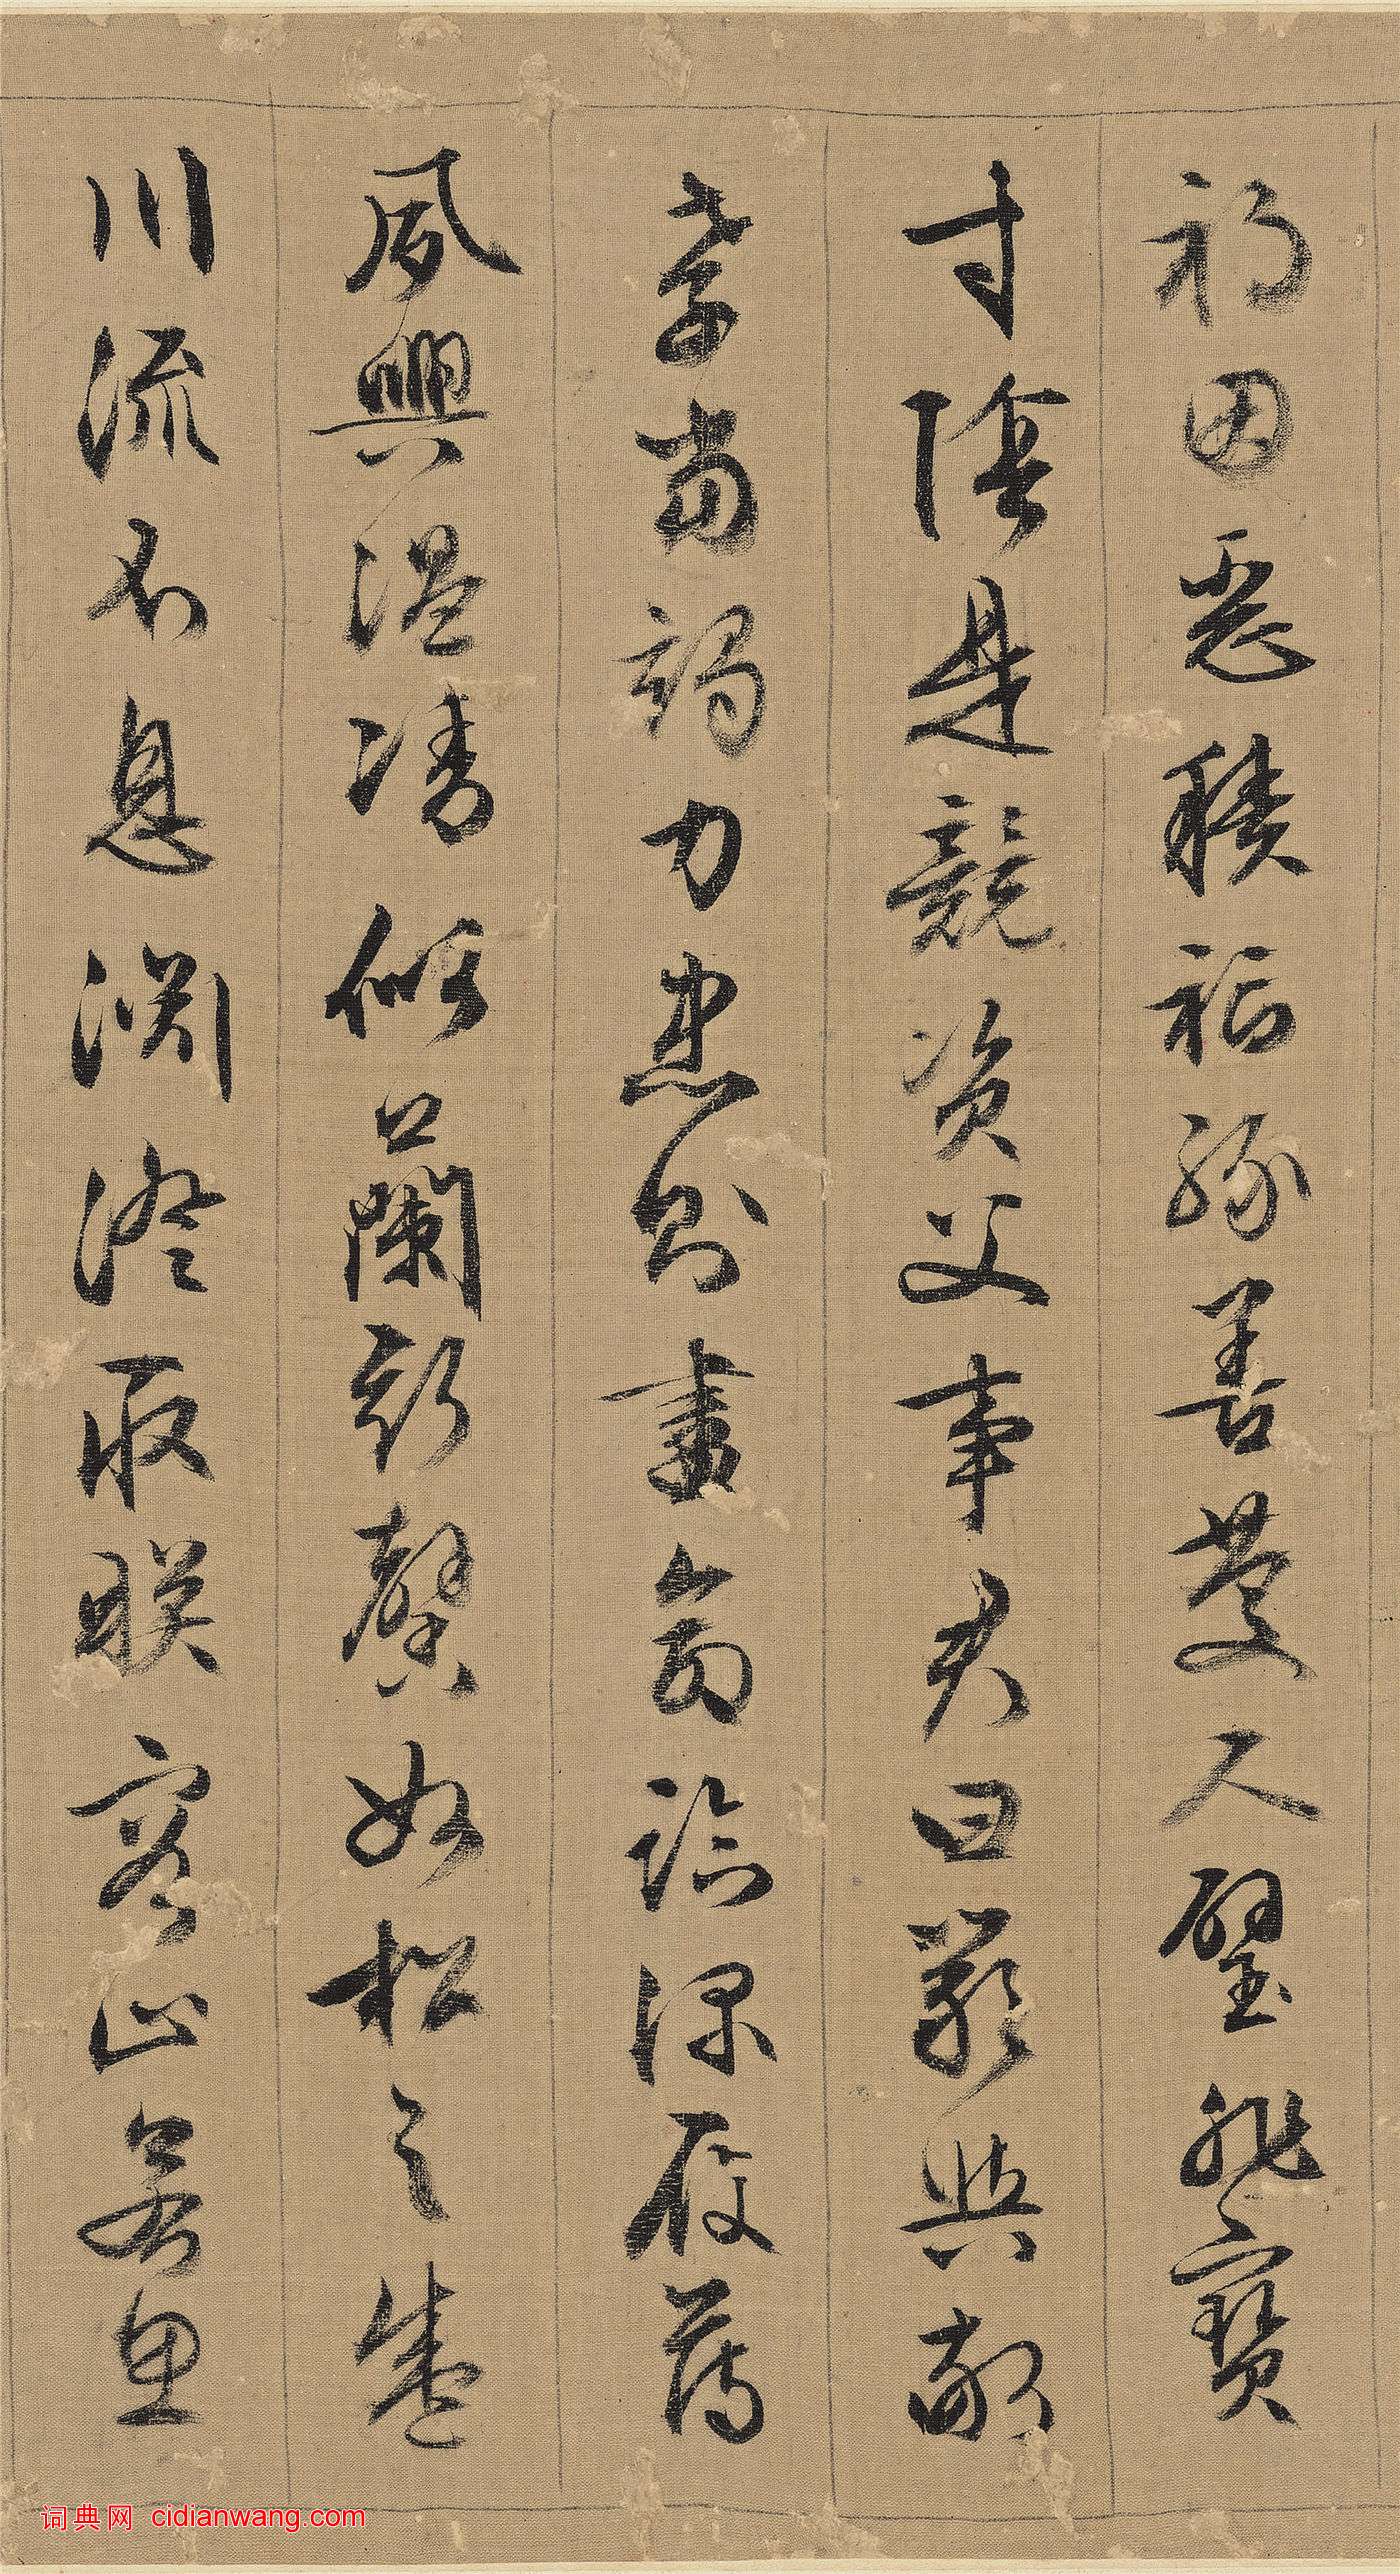 禍因惡積福緣善慶尺璧非寶
寸陰是競資父事君曰嚴與敬
孝當竭力忠則盡命臨深履薄
夙興溫凊似蘭斯馨如松之盛
川流不息淵澄取暎容止若思
词典网 cidianwang.com